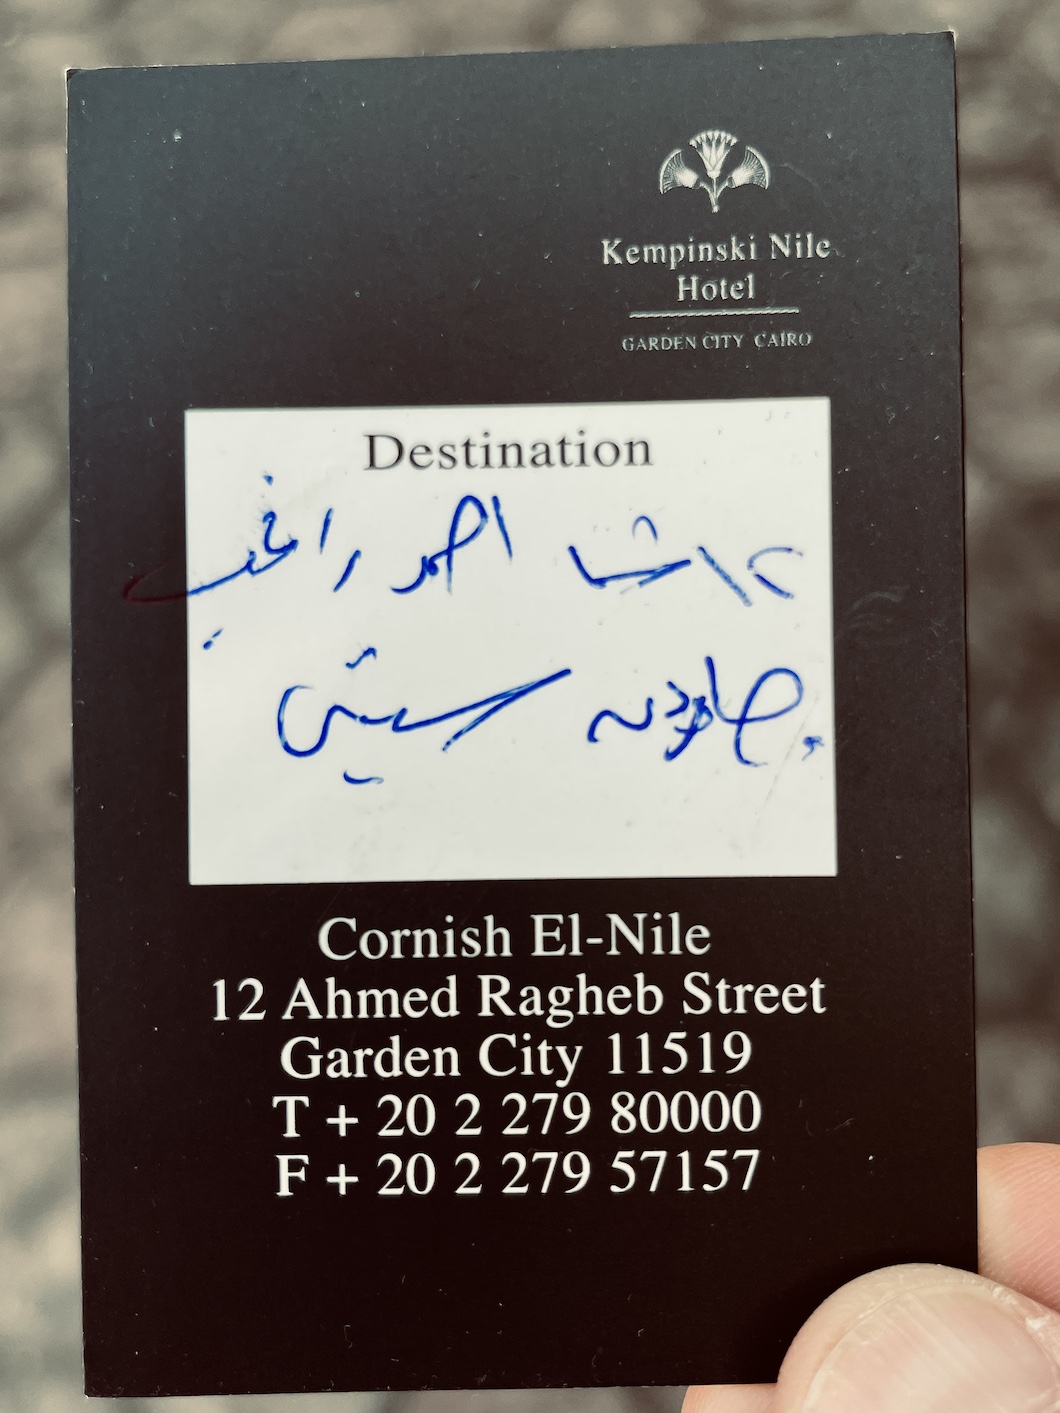 Kempinski Nile
Hotel
GARDEN CITY CAIRO
Destination
١٢ ش احمد راغب
جاردن سيتي
Cornish El-Nile
12 Ahmed Ragheb Street
Garden City 11519
T + 20 2 279 80000
F + 20 2 279 57157